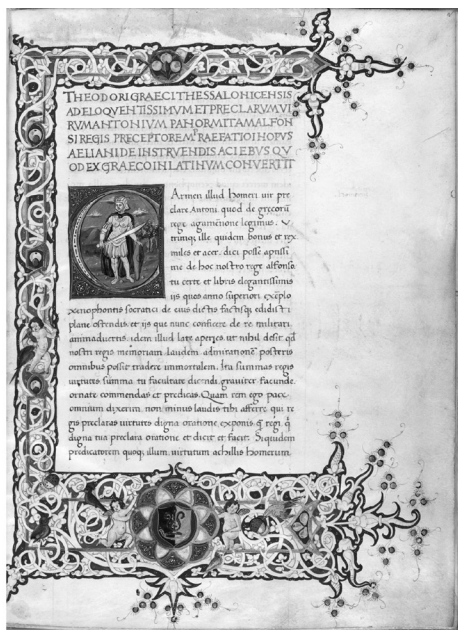 THEODORI GRAECI THESSALONICENSIS
AD ELOQVENTISSIMVM ET PRECLARVM VI
RVM ANTONIVM PANORMITAM ALFON
SI REGIS PRECEPTOREM PRAEFATIO IN OPVS
AELIANI DE INSTRVENDIS ACIEBVS QV
OD EX GRAECO IN LATINVM CONVERTIT
CArmen illud homeri uir pre
clare Antoni. quod de grecorū
rege agamenone legimus.
utrinqȝ ille quidem bonus et rex
miles et acer. dici posse aptissi
me de hoc nostro rege alfonso.
tu certe et libris elegantissimis
iis quos anno superiori exēplo
xenophontis socratici de eius dictis factisqȝ edidisti
plane ostendis. et iis que nunc conficere de re militari
animaduertis. idem illud late aperies. ut nihil desit. qd
nostri regis memoriam laudem admirationē posteris
omnibus possit tradere immortalem. Ita summas regis
uirtutes summa tu facultate dicendi grauiter facunde.
ornate commendas et predicas. Quam rem ego pace
omnium dixerim. non minus laudis tibi afferre qui re
gis preclaras uirtutes digna oratione exponis. q̄ regi. q̄
digna tua preclara oratione et dicit et facit. Siquidem
predicatorem quoqȝ illum uirtutum achillis homerum.